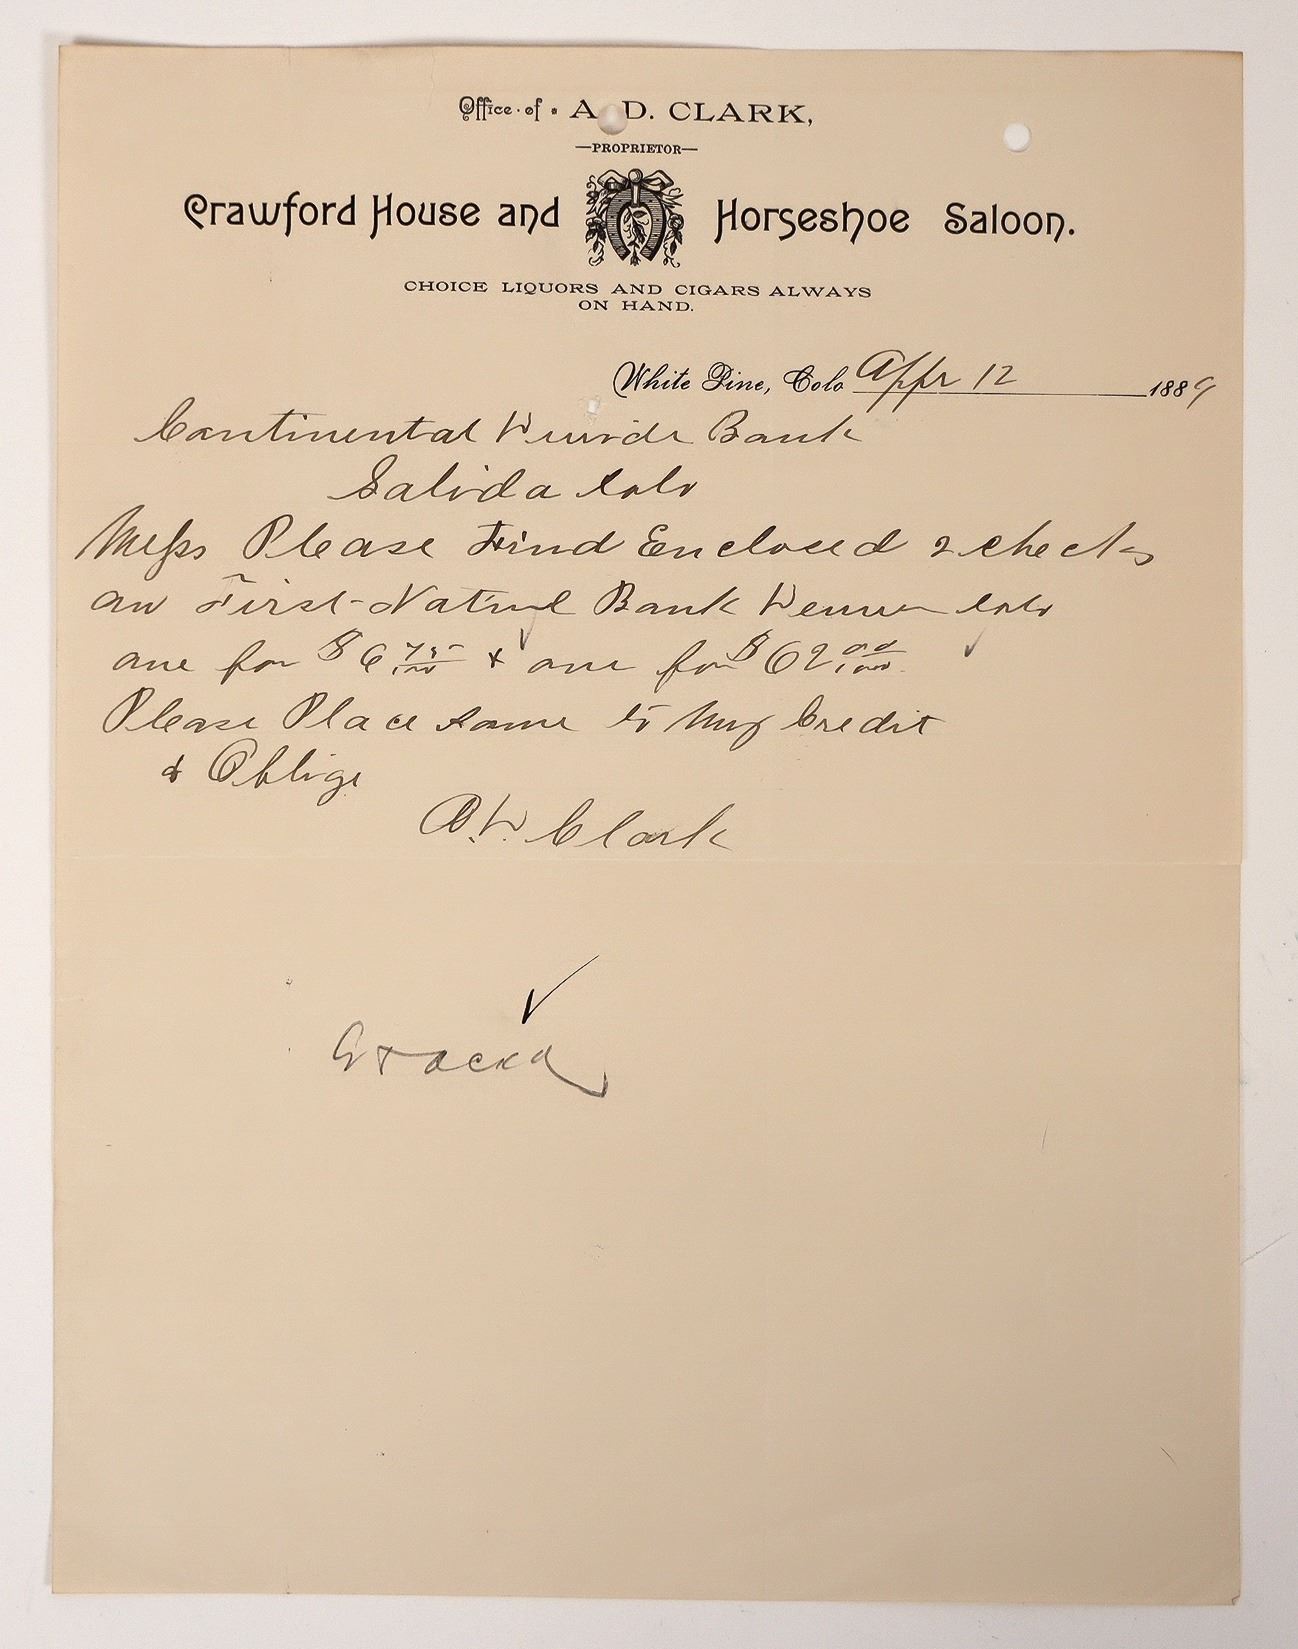 Office of A. D. CLARK,
—PROPRIETOR—
Crawford House and Horseshoe Saloon.
CHOICE LIQUORS AND CIGARS ALWAYS
ON HAND.
White Pine, Colo Appr 12 1889
Continental Divide Bank
Salida Colo
Mess Please Find Enclosed 2 checks
on First Natnl Bank Denver Colo
one for $6 75/100 & one for $62 00/100
Please Place same to My Credit
& Oblige
A.D. Clark